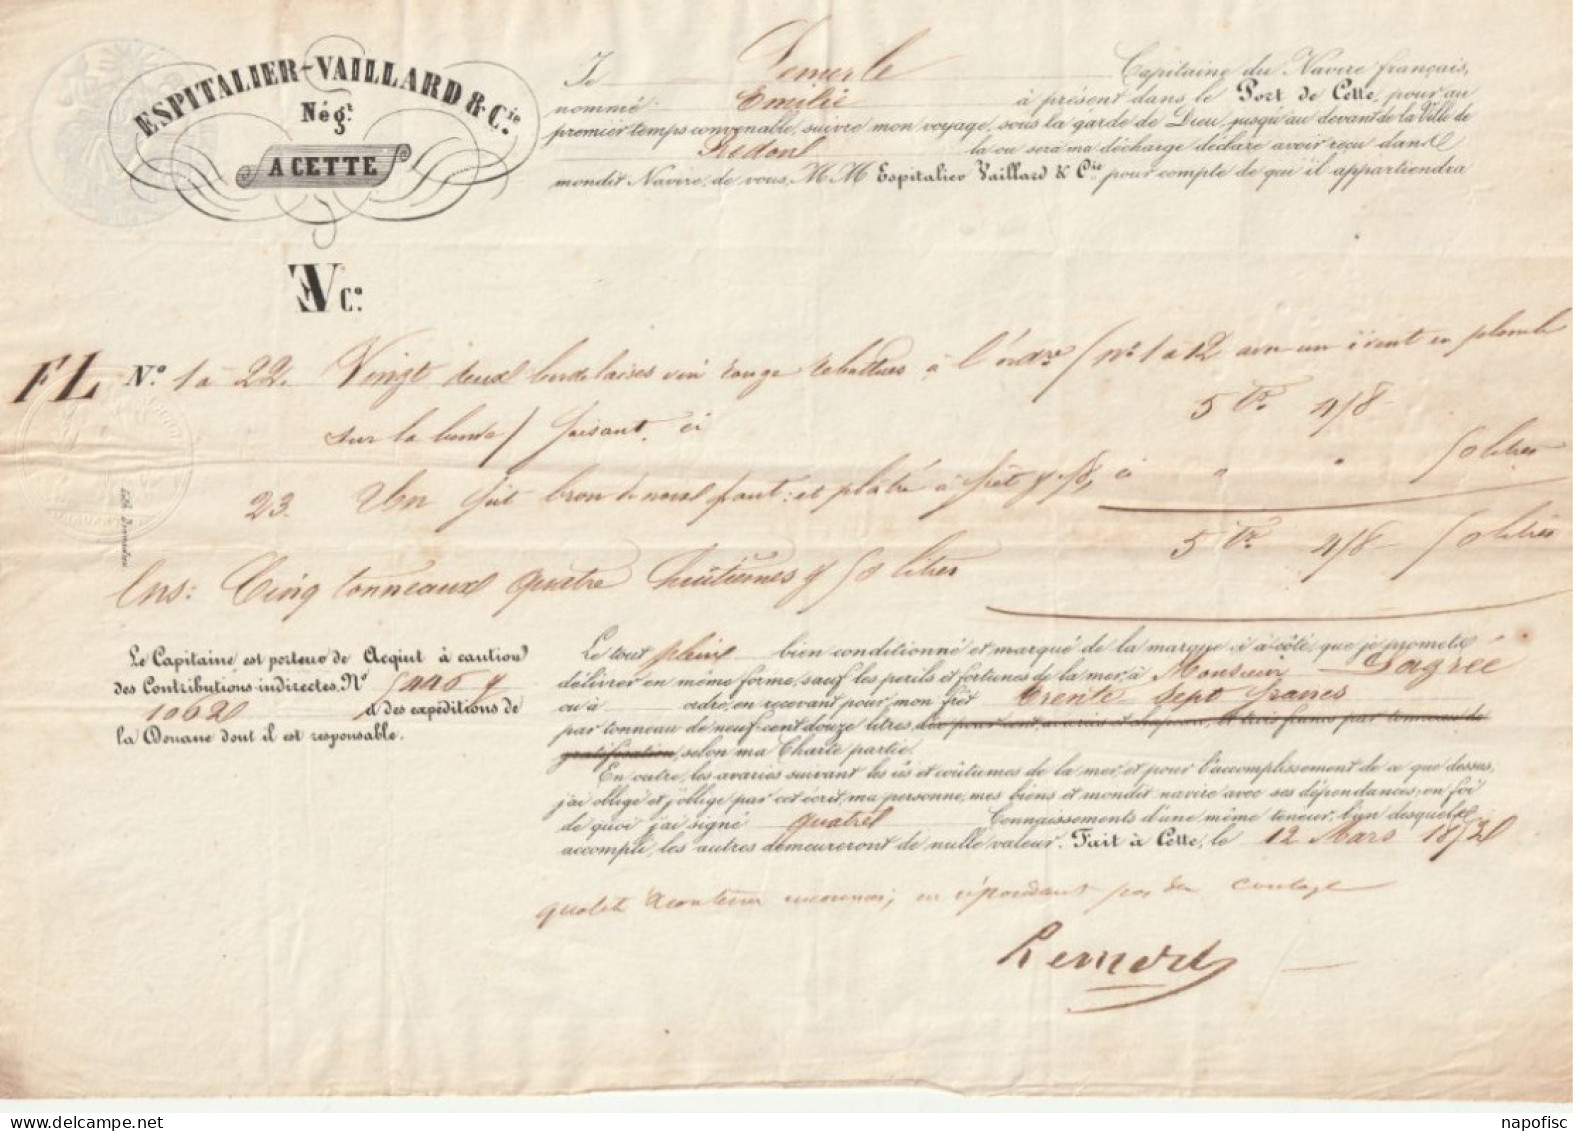 ESPITALIER-VAILLARD & C.ie
Nég.t
A CETTE
Je Lemerle Capitaine du Navire français,
nommé Emilie à présent dans le Port de Cette, pour au
premier temps convenable, suivre mon voyage, sous la garde de Dieu, jusqu'au devant de la Ville de
Redon la ou sera ma décharge déclare avoir reçu dans
mondit Navire, de vous, M M Espitalier Vaillard & Cie pour compte de qui il appartiendra
EV C.o
FL N.o 1 à 22. Vingt deux bordelaises vin rouge rebattues à l'ordre / N.o 1 à 12 en plomb
sur la bonde / faisant, ci 5 Tx. 4/8
23. Un fût et plâtré à ci " " 50 litres
5 Tx. 4/8 50 litres
Ens: Cinq tonneaux quatre huitièmes & 50 litres
Le Capitaine est porteur de Acquit à caution
des Contributions indirectes, N.o 5446 &
1062 & des expéditions de
la Douane dont il est responsable.
Le tout plein bien conditionné et marqué de la marque ci à côté, que je promets
délivrer en même forme, sauf les perils et fortunes de la mer, à Monsieur Dagrée
ou à ordre, en recevant pour mon frêt trente sept francs
par tonneau de neuf-cent douze litres, dix pour cent avaries et chapeau, et trois francs par tonneau de
gratification, selon ma Charte partie.
En outre, les avaries suivant les üs et coûtumes de la mer, et pour l'accomplissement de ce que dessus,
j'ai obligé et j'oblige par cet écrit, ma personne, mes biens et mondit navire avec ses dépendances, en foi
de quoi j'ai signé quatre Connaissements d'une même teneur, l'un desquels
accompli, les autres demeureront de nulle valeur. Fait à Cette, le 12 Mars 1852
en répondant pas du coulage
Lemerle
napofisc